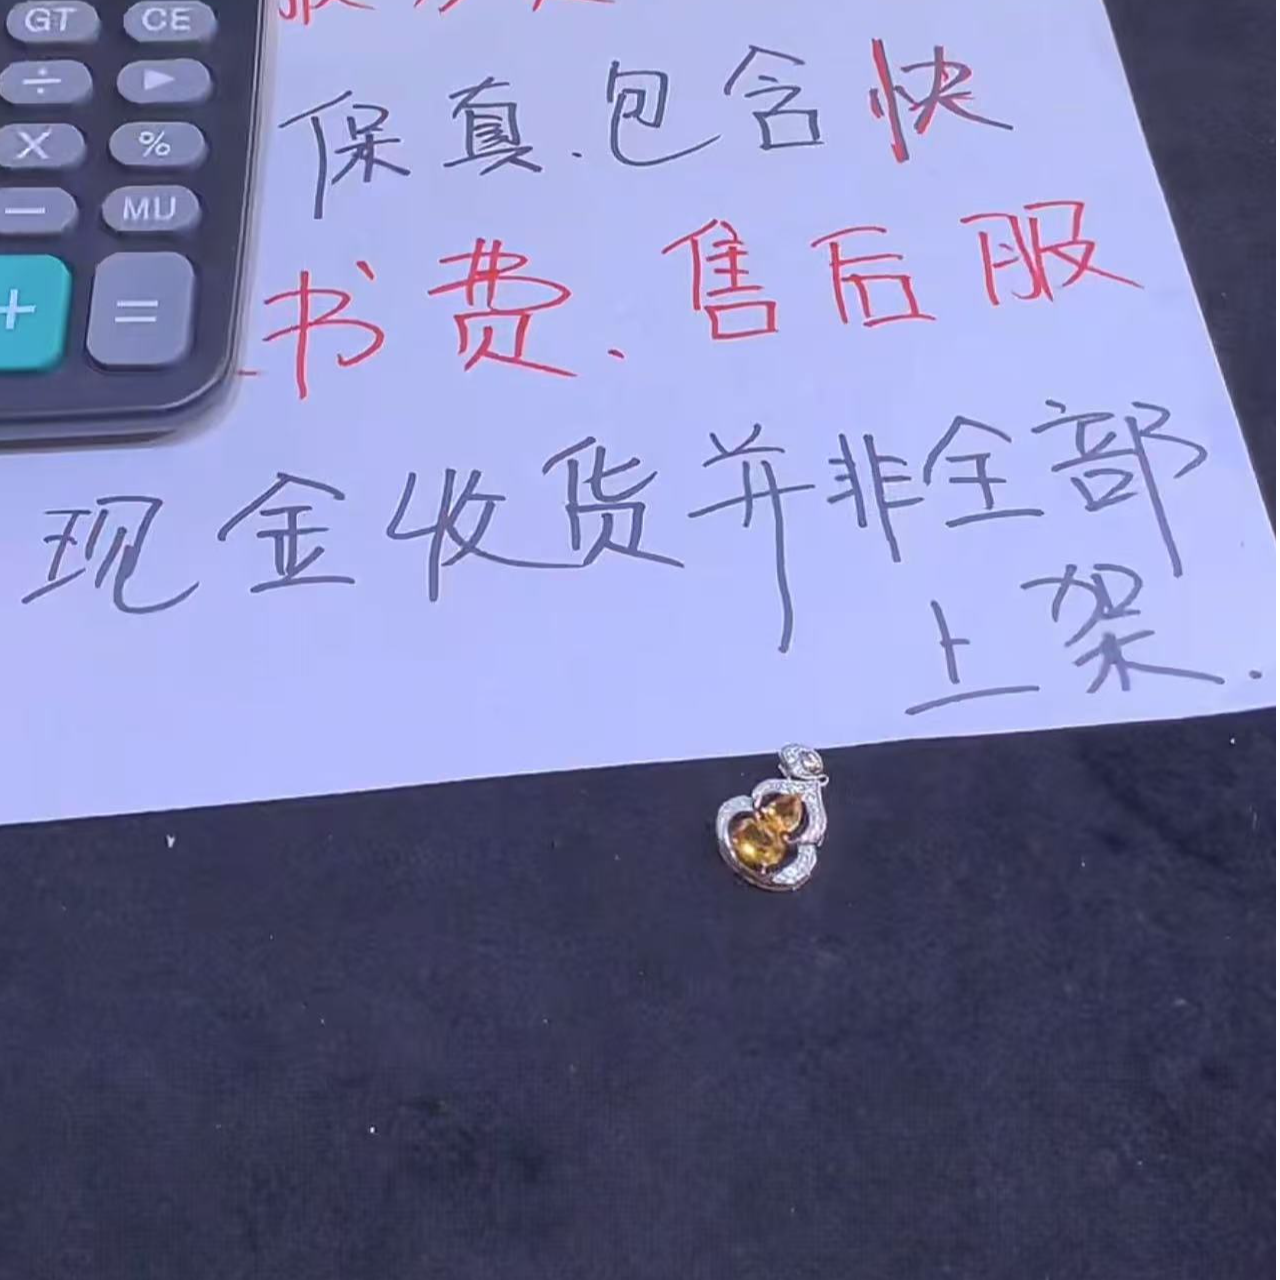 GT CE
÷ ▶
X %
— MU
+ =
保真.包含快
书费.售后服
现金收货并非全部
上架.